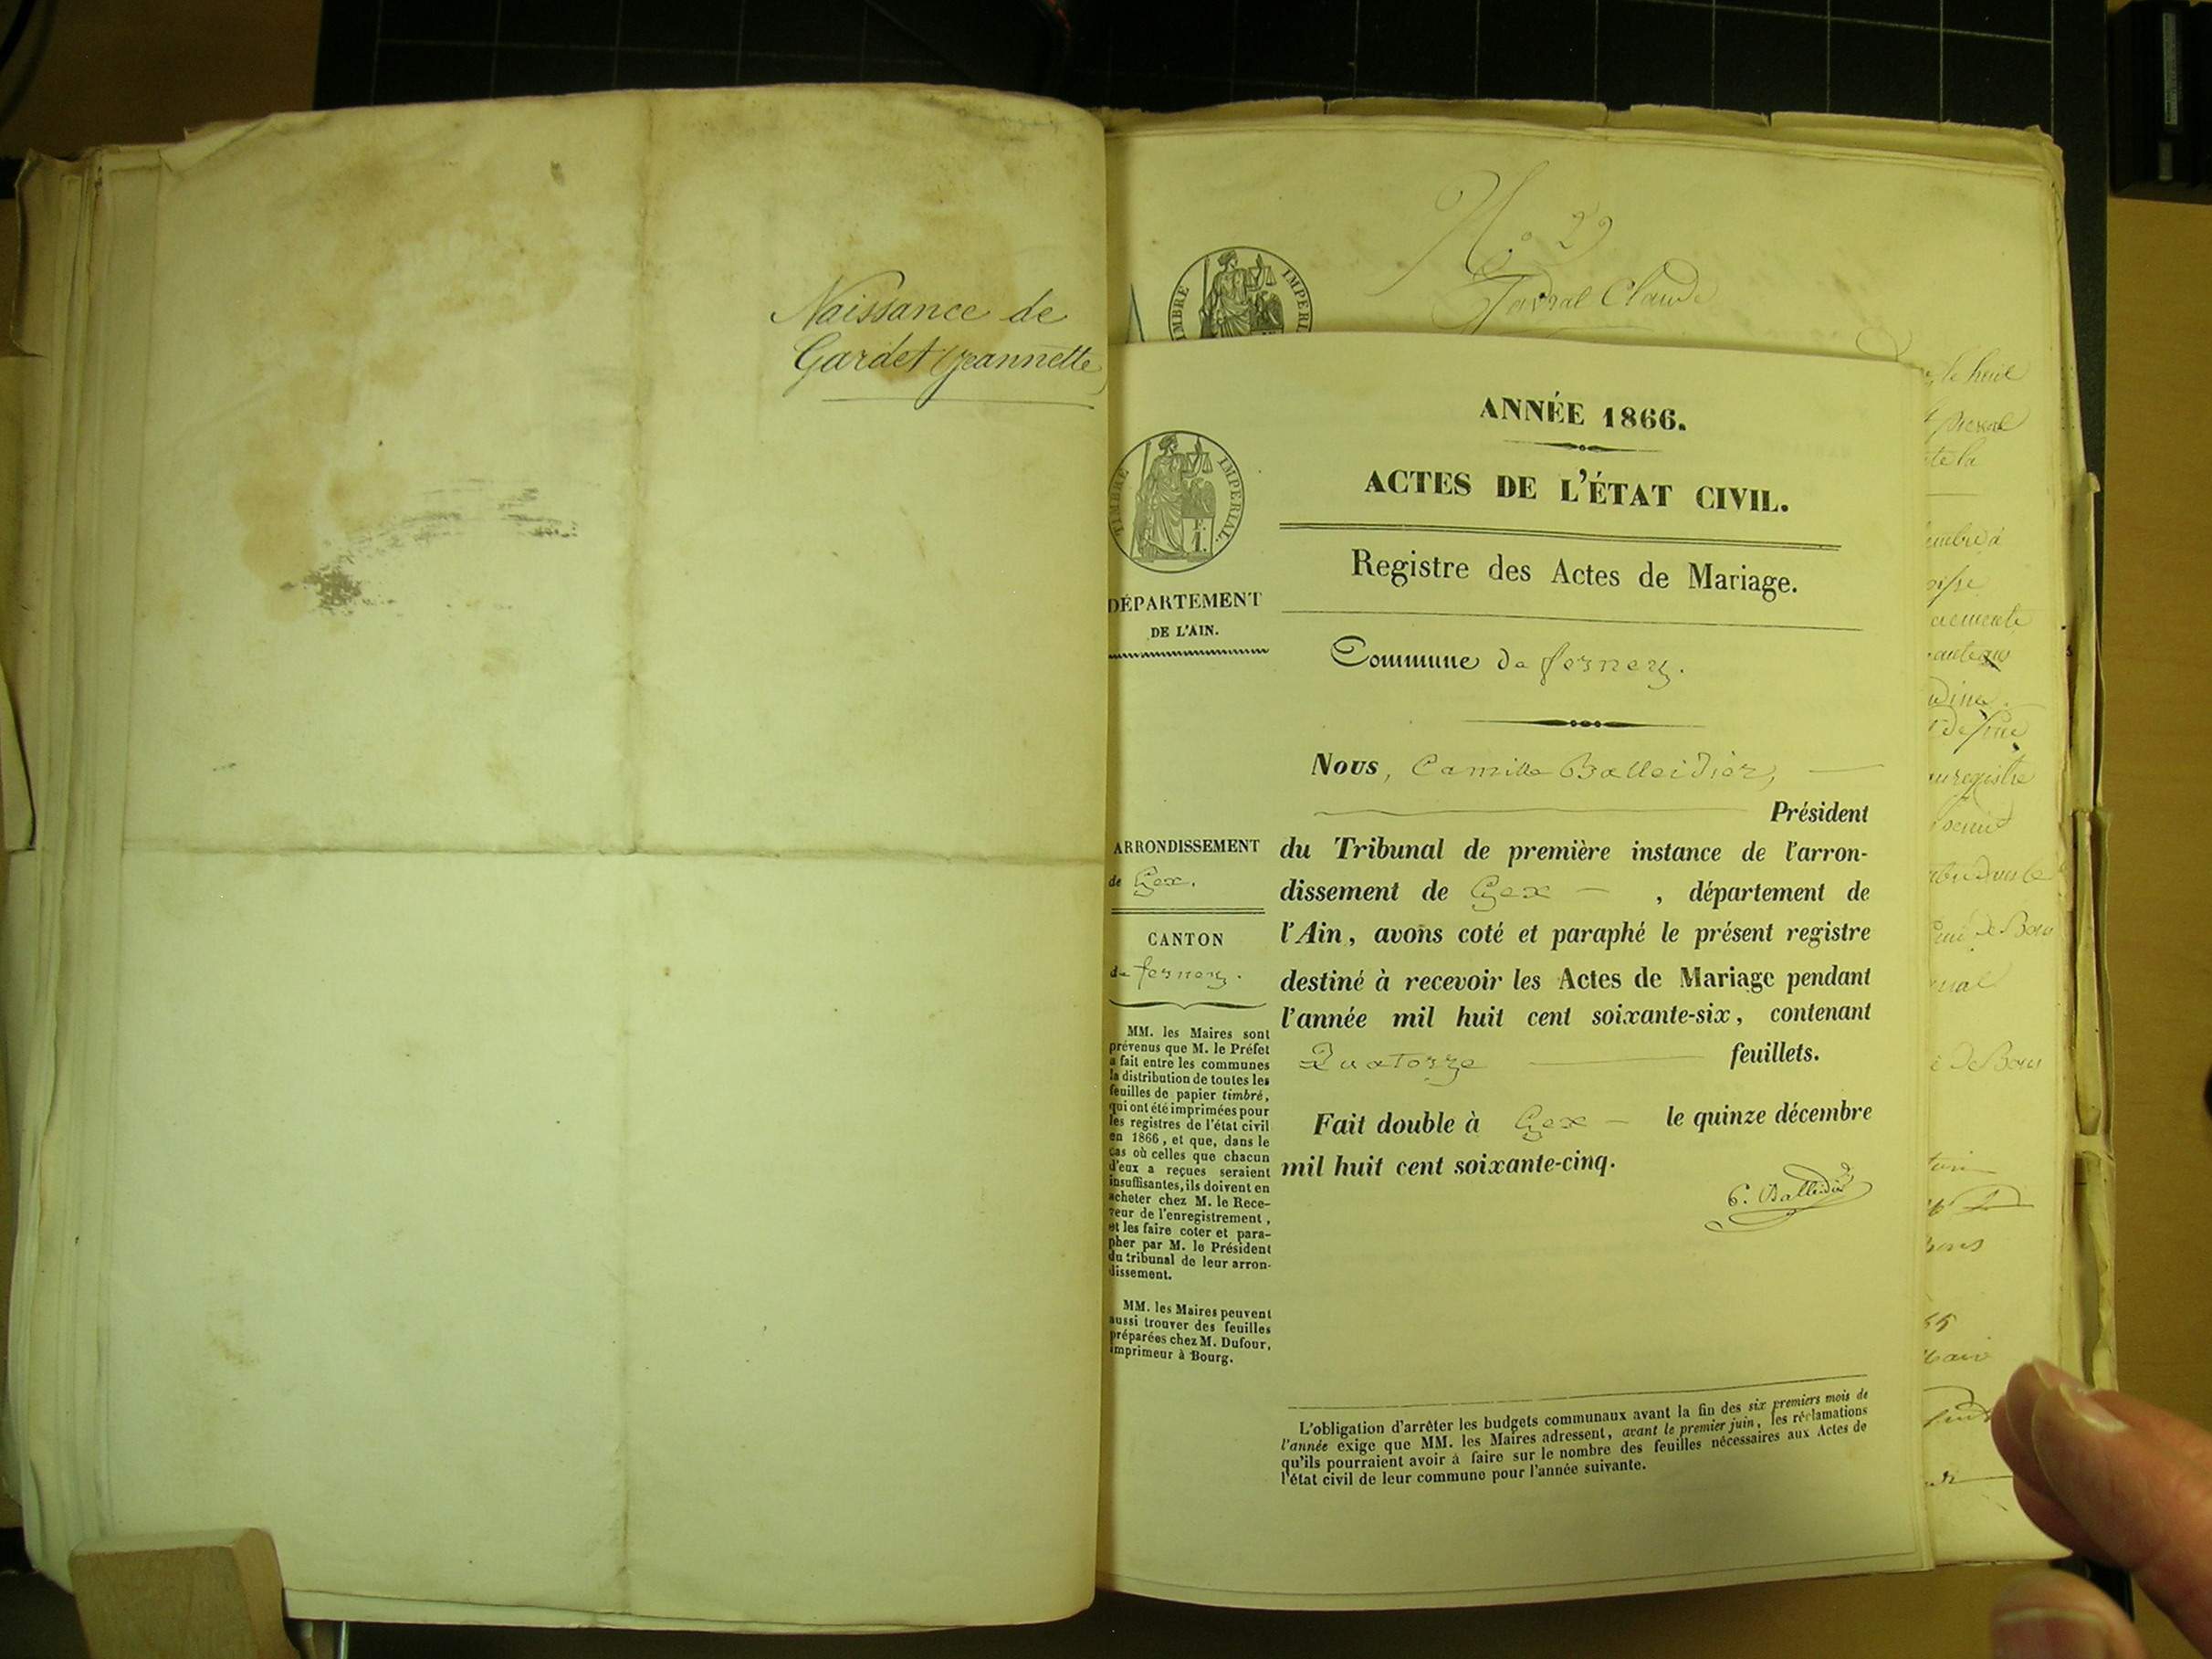 Naissance de
Gardet Jeannette
N.o 29
Claude
TIMBRE IMPERIAL
ANNÉE 1866.
ACTES DE L'ÉTAT CIVIL.
Registre des Actes de Mariage.
TIMBRE IMPERIAL.
F.
1.
DÉPARTEMENT
DE L'AIN.
Commune de ferney.
Nous, Camille Balleidier,
Président
ARRONDISSEMENT
de Gex.
CANTON
de ferney.
du Tribunal de première instance de l'arron-
dissement de Gex , département de
l'Ain, avons coté et paraphé le présent registre
destiné à recevoir les Actes de Mariage pendant
l'année mil huit cent soixante-six, contenant
Quatorze feuillets.
Fait double à Gex le quinze décembre
mil huit cent soixante-cinq.
C. Balleidier
MM. les Maires sont
prévenus que M. le Préfet
a fait entre les communes
la distribution de toutes les
feuilles de papier timbré,
qui ont été imprimées pour
les registres de l'état civil
en 1866, et que, dans le
cas où celles que chacun
d'eux a reçues seraient
insuffisantes, ils doivent en
acheter chez M. le Rece-
veur de l'enregistrement,
et les faire coter et para-
pher par M. le Président
du tribunal de leur arron-
dissement.
MM. les Maires peuvent
aussi trouver des feuilles
préparées chez M. Dufour,
imprimeur à Bourg.
L'obligation d'arrêter les budgets communaux avant la fin des six premiers mois de
l'année exige que MM. les Maires adressent, avant le premier juin, les réclamations
qu'ils pourraient avoir à faire sur le nombre des feuilles nécessaires aux Actes de
l'état civil de leur commune pour l'année suivante.